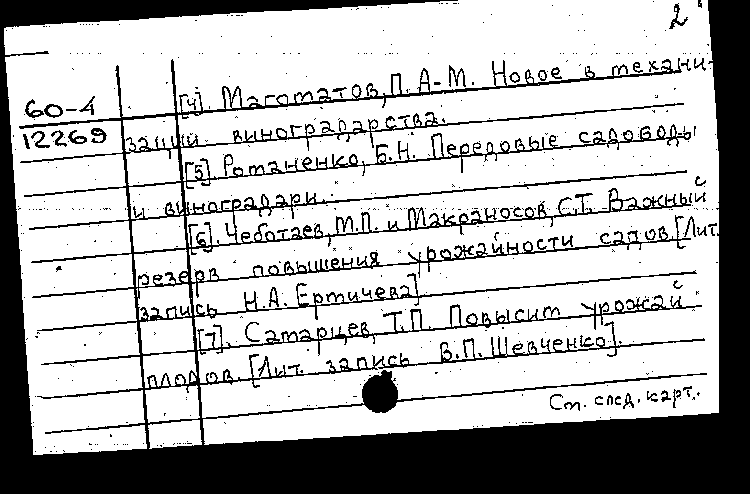 2
60-4
12269
[4]. Магоматов, П. А-М. Новое в механи-
зации виноградарства.
[5]. Романенко, Б.Н. Передовые садоводы
и виноградари.
[6]. Чеботаев, М.П. и Макраносов, С.Т. Важный
резерв повышения урожайности садов. [Лит.
запись Н.А. Ермичева]
[7]. Самарцев, Т.П. Повысит урожай
плодов. [Лит. запись В.П. Шевченко].
См. след. карт.